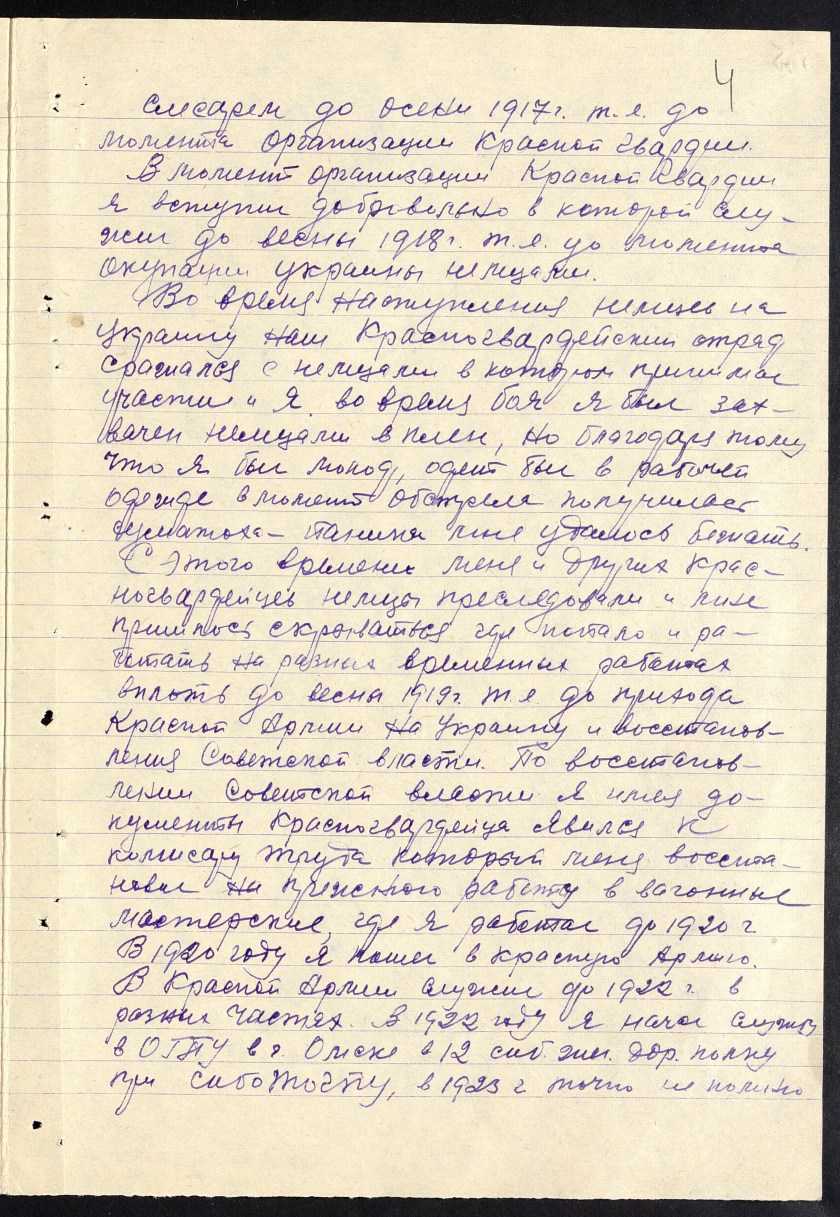 4
слесарем до осени 1917 г. т.е. до
момента организации Красной гвардии.
В момент организации Красной Гвардии
я вступил добровольно в которой слу-
жил до весны 1918 г. т.е. до момента
окупации украины немцами.
Во время наступления немцев на
украину наш Красногвардейский отряд
сражался с немцами в котором принимал
участи и я. во время боя я был зах-
вачен немцами в плен, но благодаря тому
что я был молод, одет был в рабочей
одежде в момент обстрела получилась
суматоха – паника мне удалось бежать.
С этого времени меня и других крас-
ногвардейцев немцы преследовали и мне
пришлось скрываться где попало и ра-
ботать на разных временных работах
вплоть до весны 1919 г. т.е. до прихода
Красной Армии на Украину и восстанов-
ления Советской власти. По восстанов-
лении Советской власти я имея до-
кументы Красногвардейца явился к
комисару труда который меня восста-
новил на прежнюю работу в вагонные
мастерские, где я работал до 1920 г
В 1920 году я пошел в красную Армию.
В Красной Армии служил до 1922 г. в
разных частях. в 1922 году я начал службу
в ОГПУ в г. Омске в 12 сиб. жел. дор. полку
при, в 1923 г точно не помню